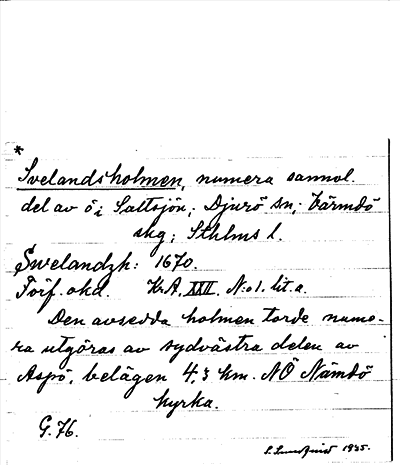 *
Svelandsholmen, numera sannol.
del av ö i Saltsjön; Djurö sn; Värmdö
skg; Sthlms l.
Swelandzh: 1670.
Förf. okd. K.A. XXII. N:o 1. lit a.
Den avsedda holmen torde nume-
ra utgöras av sydvästra delen av
Aspö, belägen 4,3 km. NÖ Nämdö
kyrka.
G. 76.
1935.